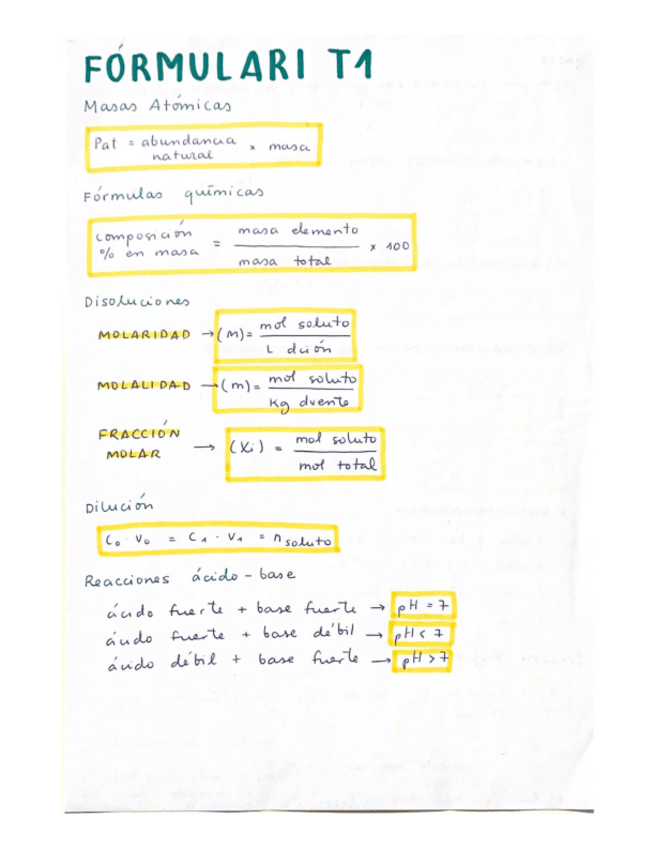 FÓRMULARI T1
Masas Atómicas
Pat = abundancia natural × masa
Fórmulas químicas
composición % en masa = masa elemento / masa total × 100
Disoluciones
MOLARIDAD → (M) = mol soluto / L dción
MOLALIDAD → (m) = mol soluto / Kg dvente
FRACCIÓN MOLAR → (Xi) = mol soluto / mol total
Dilución
C₀ · V₀ = C₁ · V₁ = n soluto
Reacciones ácido - base
ácido fuerte + base fuerte → pH = 7
ácido fuerte + base débil → pH < 7
ácido débil + base fuerte → pH > 7